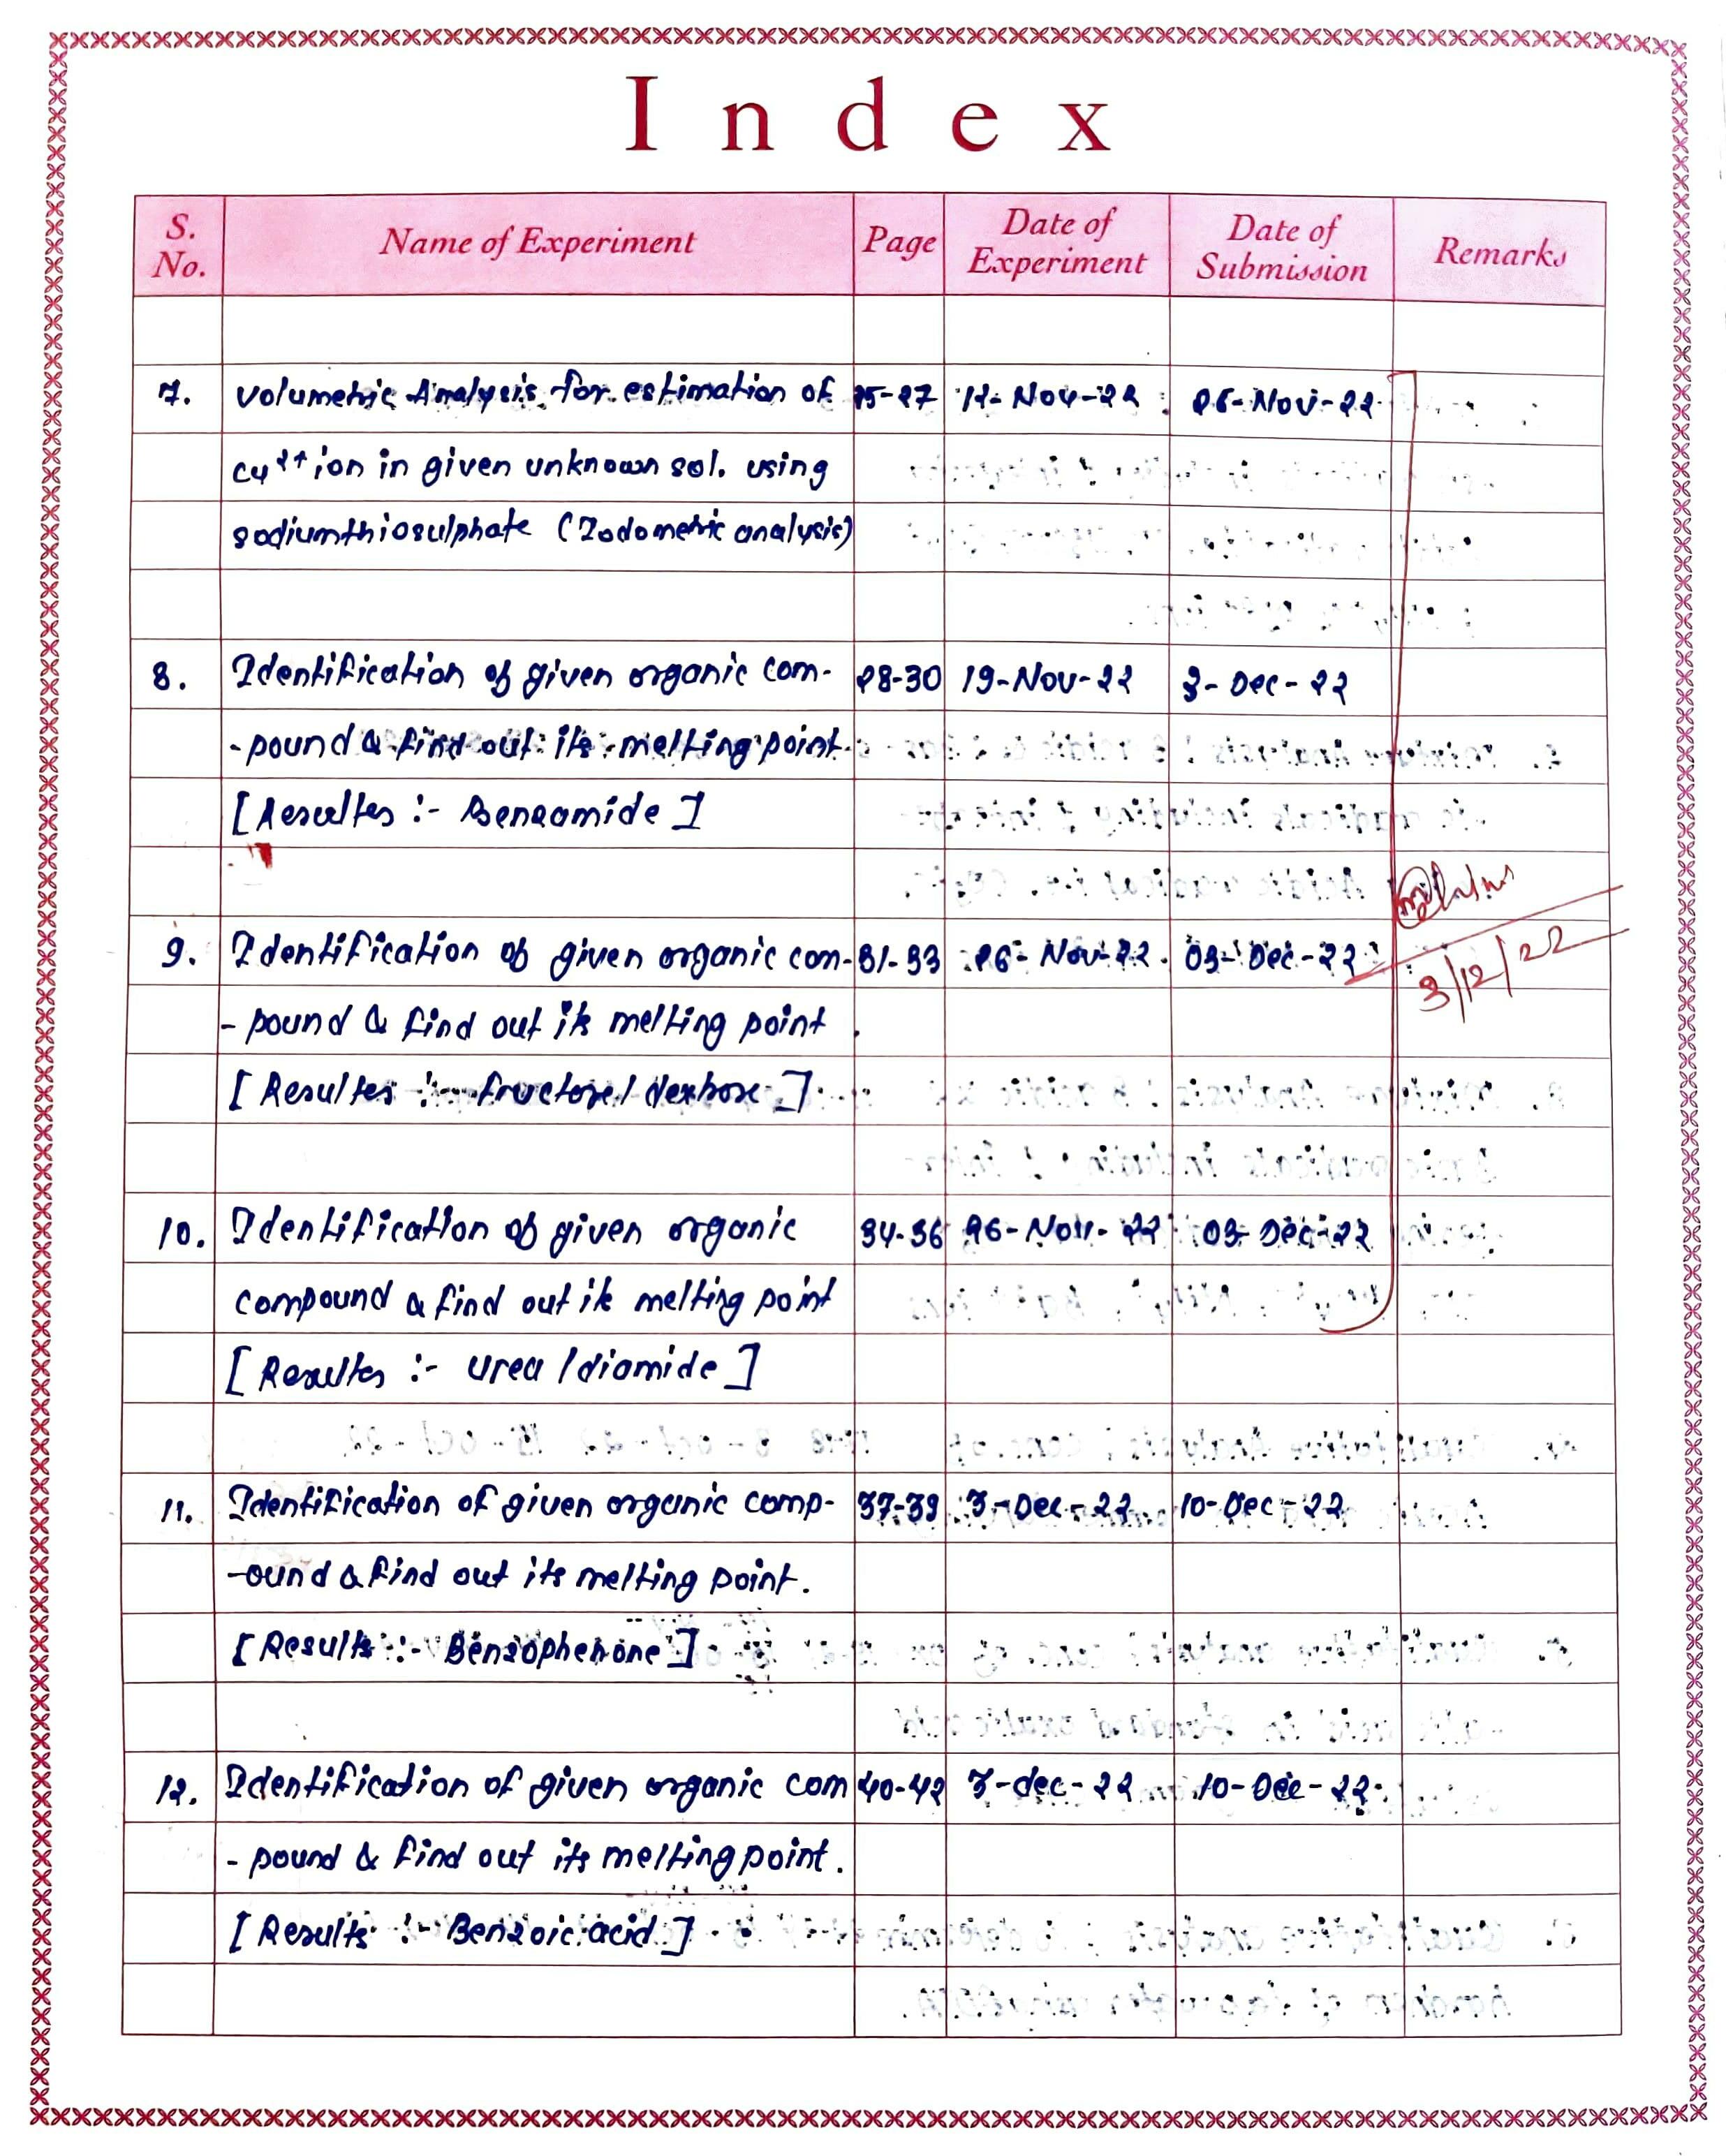 Index
S. No. Name of Experiment Page Date of Experiment Date of Submission Remarks
7. Volumetric Analysis for estimation of 25-27 12-Nov-22 26-Nov-22
Cu²⁺ ion in given unknown sol. using
sodiumthiosulphate (Iodometric analysis)
8. Identification of given organic com- 28-30 19-Nov-22 3-Dec-22
-pound & find out its melting point.
[Resultes :- Benzamide]
9. Identification of given organic com- 31-33 26-Nov-22 03-Dec-22
-pound & find out its melting point
[Resultes :- fructose/dextrose]
3/12/22
10. Identification of given organic 34-36 26-Nov-22 03-Dec-22
compound & find out its melting point
[Resultes :- Urea/diamide]
11. Identification of given organic comp- 37-39 3-Dec-22 10-Dec-22
-ound & find out its melting point.
[Results :- Benzophenone]
12. Identification of given organic com 40-42 3-dec-22 10-Dec-22
-pound & find out its melting point.
[Results :- Benzoic acid]